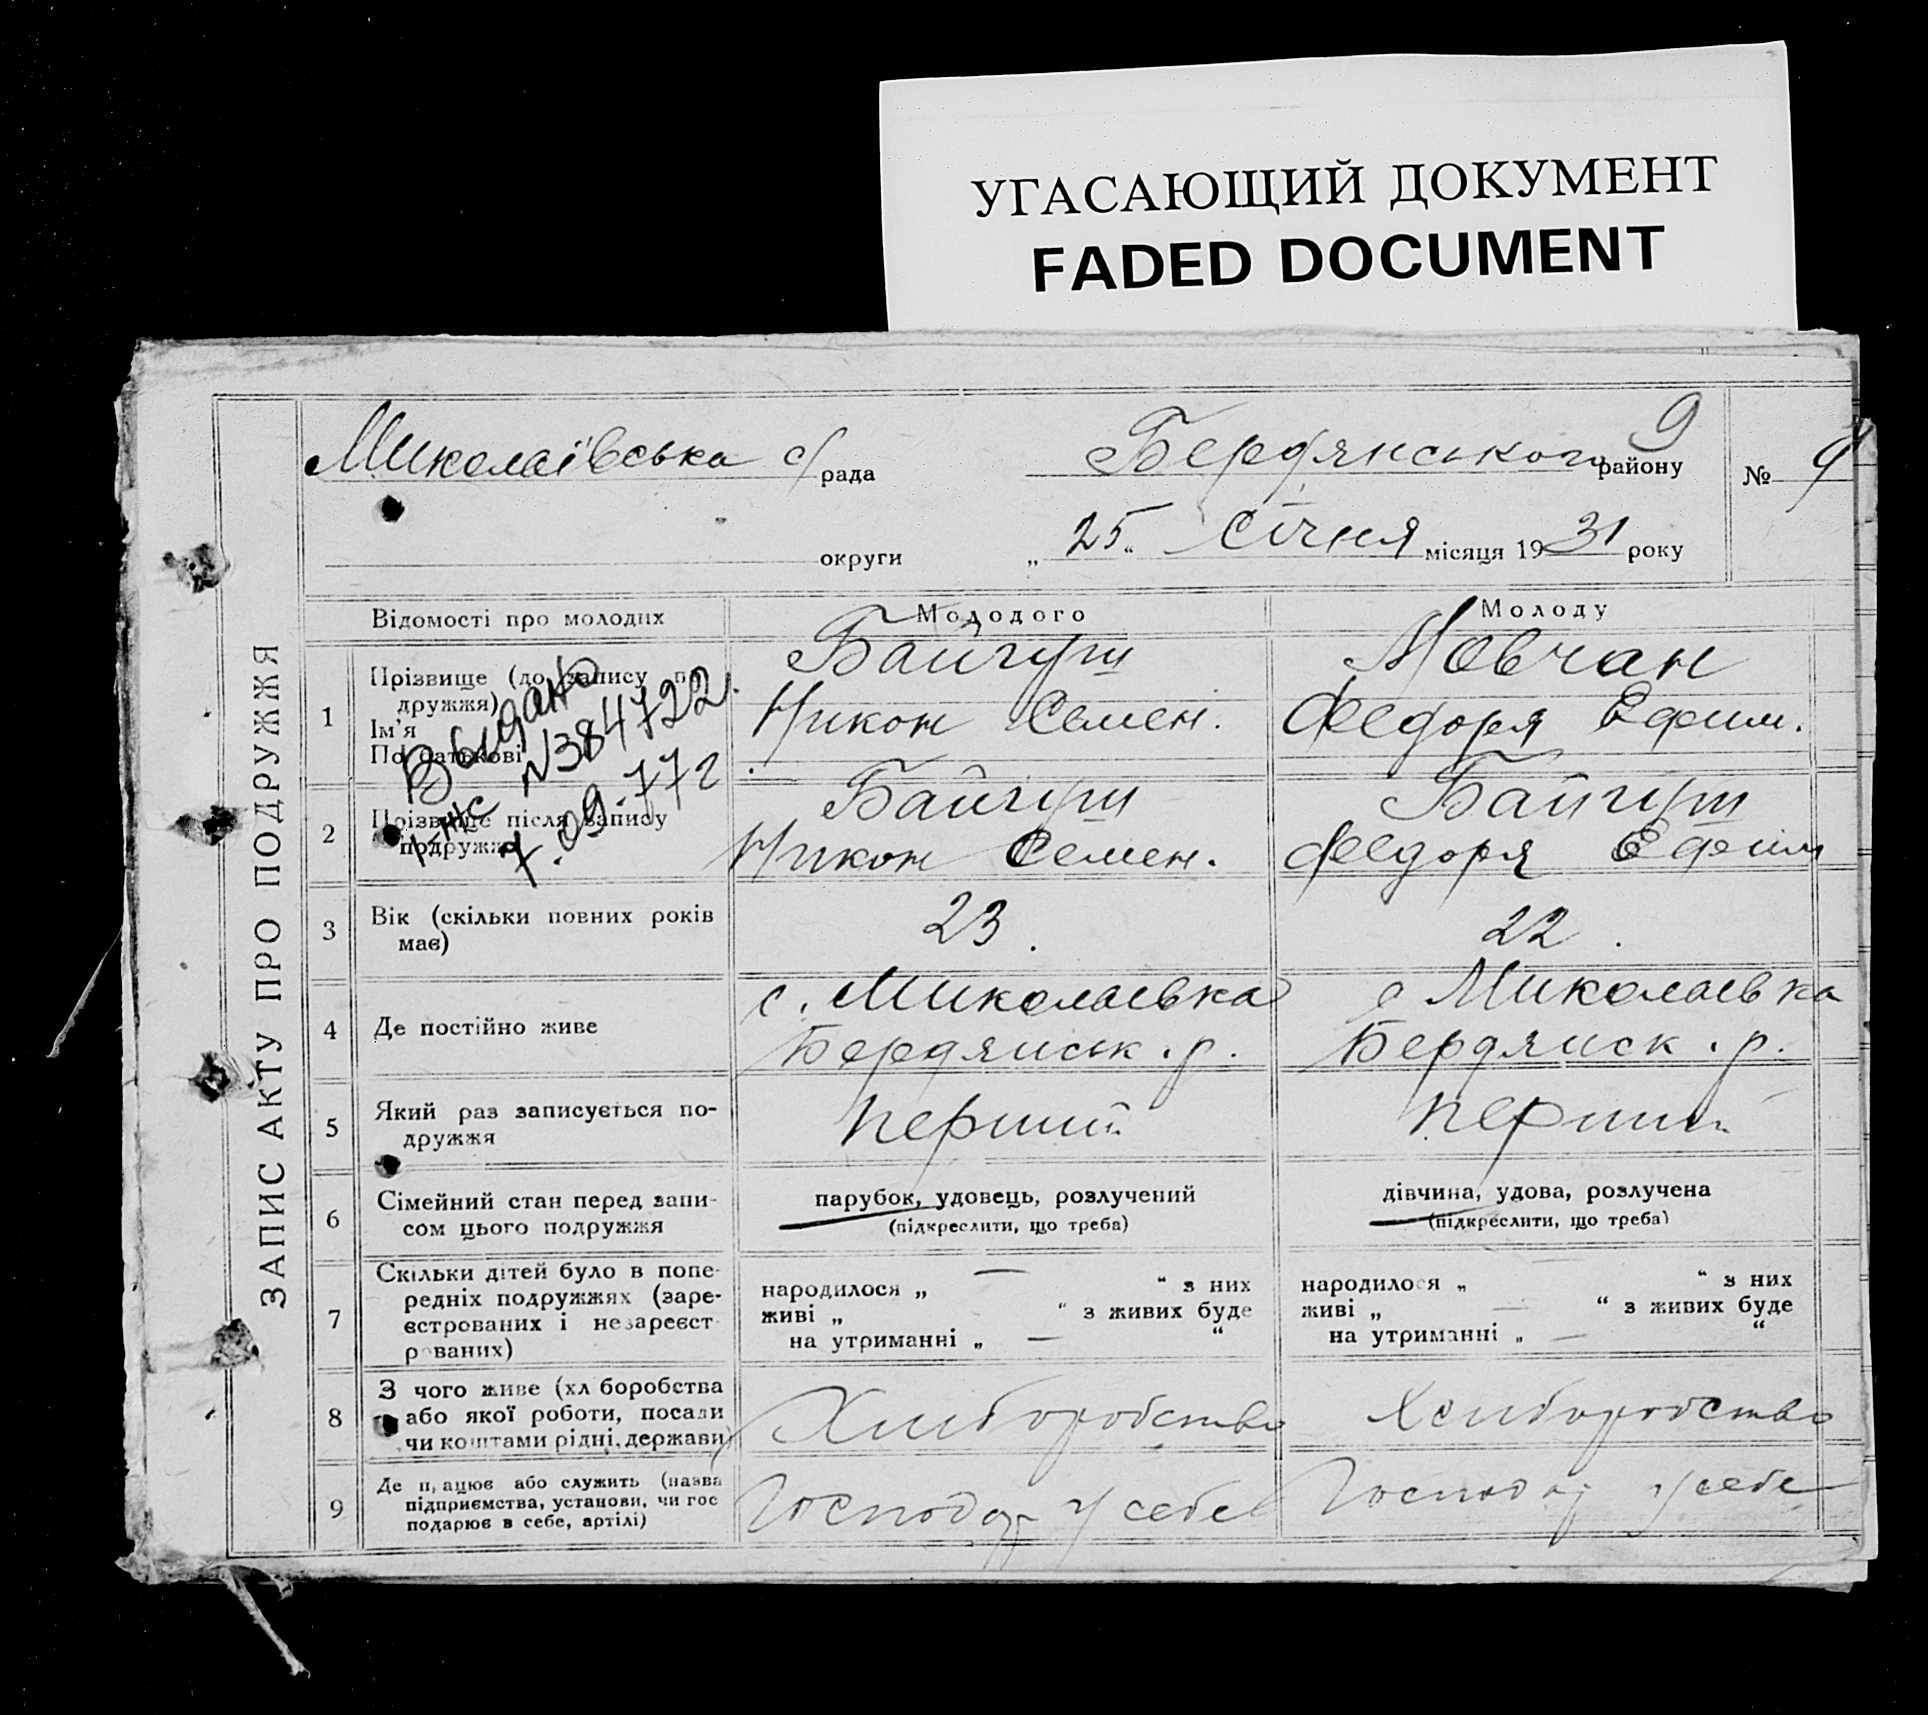 УГАСАЮЩИЙ ДОКУМЕНТ
FADED DOCUMENT
ЗАПИС АКТУ ПРО ПОДРУЖЖЯ
Миколаївська с/рада Бердянського району 9 № 9
округи „25“ Січня місяця 1931 року
Відомості про молодих Молодого Молоду
1 Прізвище (до запису по-
дружжя)
Ім'я
По батькові
Байгуш
Никон Семен.
Мовчан
Федоря Ефим.
Выдано
І-ЖС №384722.
7.09.77г.
2 Прізвище після запису
подружжя
Байгуш
Никон Семен.
Байгуш
Федоря Ефим
3 Вік (скільки повних років
має)
23.
22.
4 Де постійно живе
с. Миколаевка
Бердянськ. р.
с Миколаевка
Бердянск. р.
5 Який раз записується по-
дружжя
перший
перший
6 Сімейний стан перед запи-
сом цього подружжя
парубок, удовець, розлучений
(підкреслити, що треба)
дівчина, удова, розлучена
(підкреслити, що треба)
7 Скільки дітей було в попе-
редніх подружжях (заре-
єстрованих і незареєст-
рованих)
народилося „ — “ з них
живі „ “ з живих буде
на утриманні „ — “
народилося „ “ з них
живі „ — “ з живих буде
на утриманні „ — “
8 З чого живе (хліборобства
або якої роботи, посади
чи коштами рідні, держави)
Хлиборобство
Хлиборобство
9 Де працює або служить (назва
підприємства, установи, чи гос
подарює в себе, артілі)
Господар у себе
Господар у себе